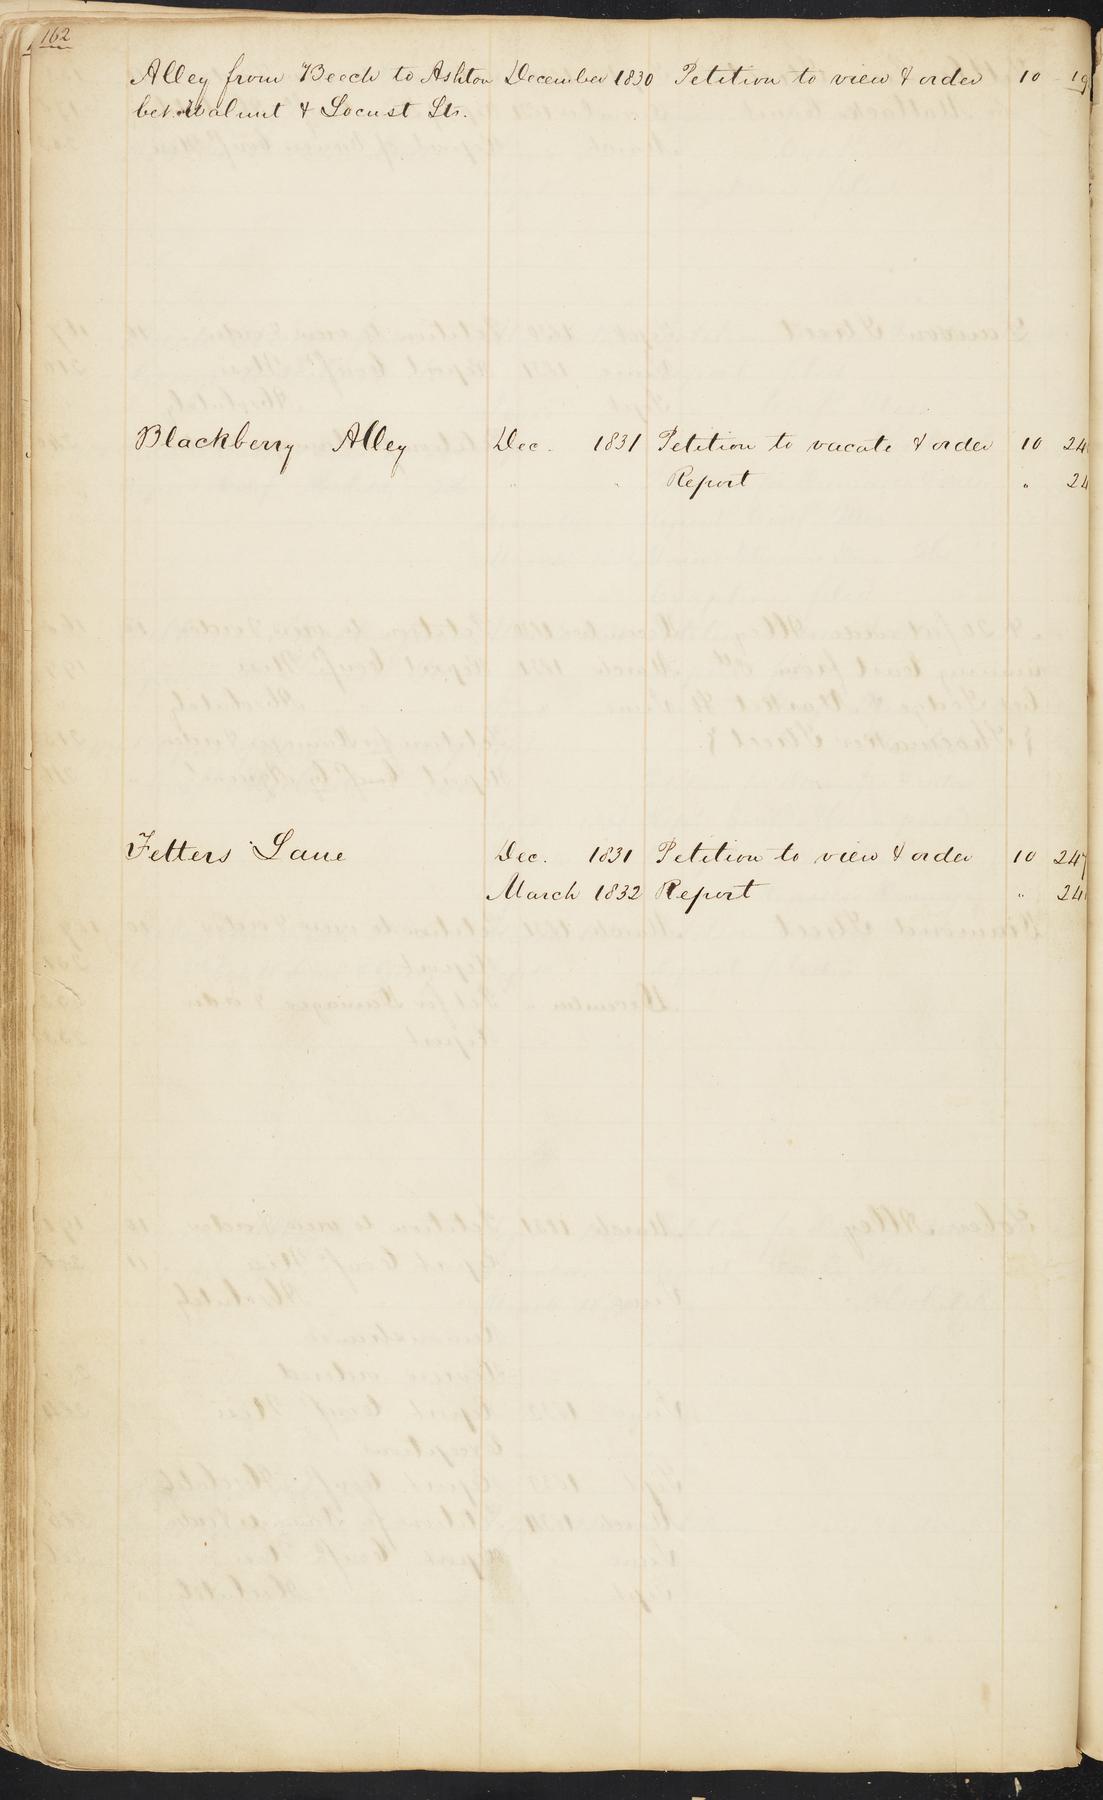 162
Alley from Beech to Ashton December 1830 Petition to view & order 10 19
bet. Walnut & Locust Sts.
Blackberry Alley Dec. 1831 Petition to vacate & order 10 24
" " Report " 24
Fetters Lane Dec. 1831 Petition to view & order 10 247
March 1832 Report " 24